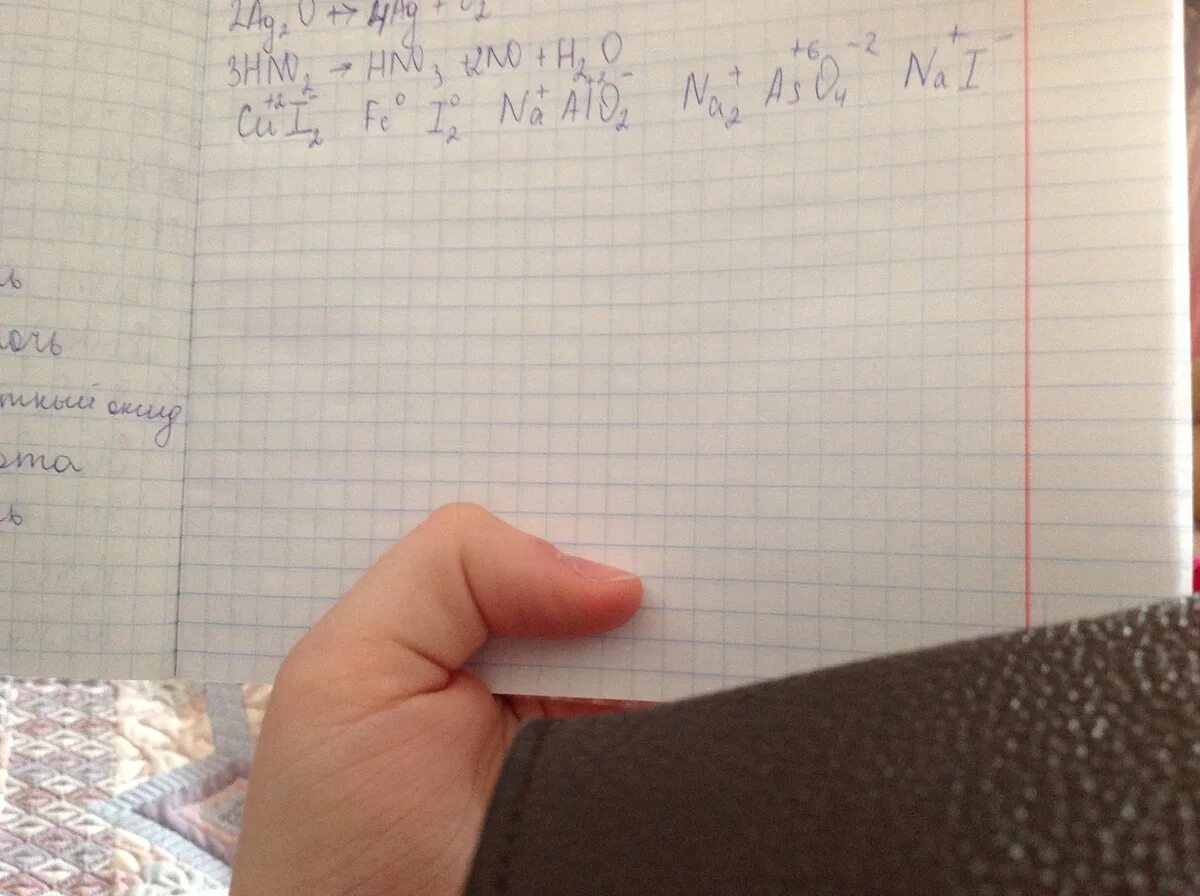 2Ag₂O → 4Ag + O₂
3HNO₂ → HNO₃ + 2NO + H₂O
Cu⁺²I⁻₂ Fe⁰ I⁰₂ Na⁺AlO₂⁻ Na₂⁺As⁺⁶O₄⁻² Na⁺I⁻
ь
очь
тный оксид
ота
ь